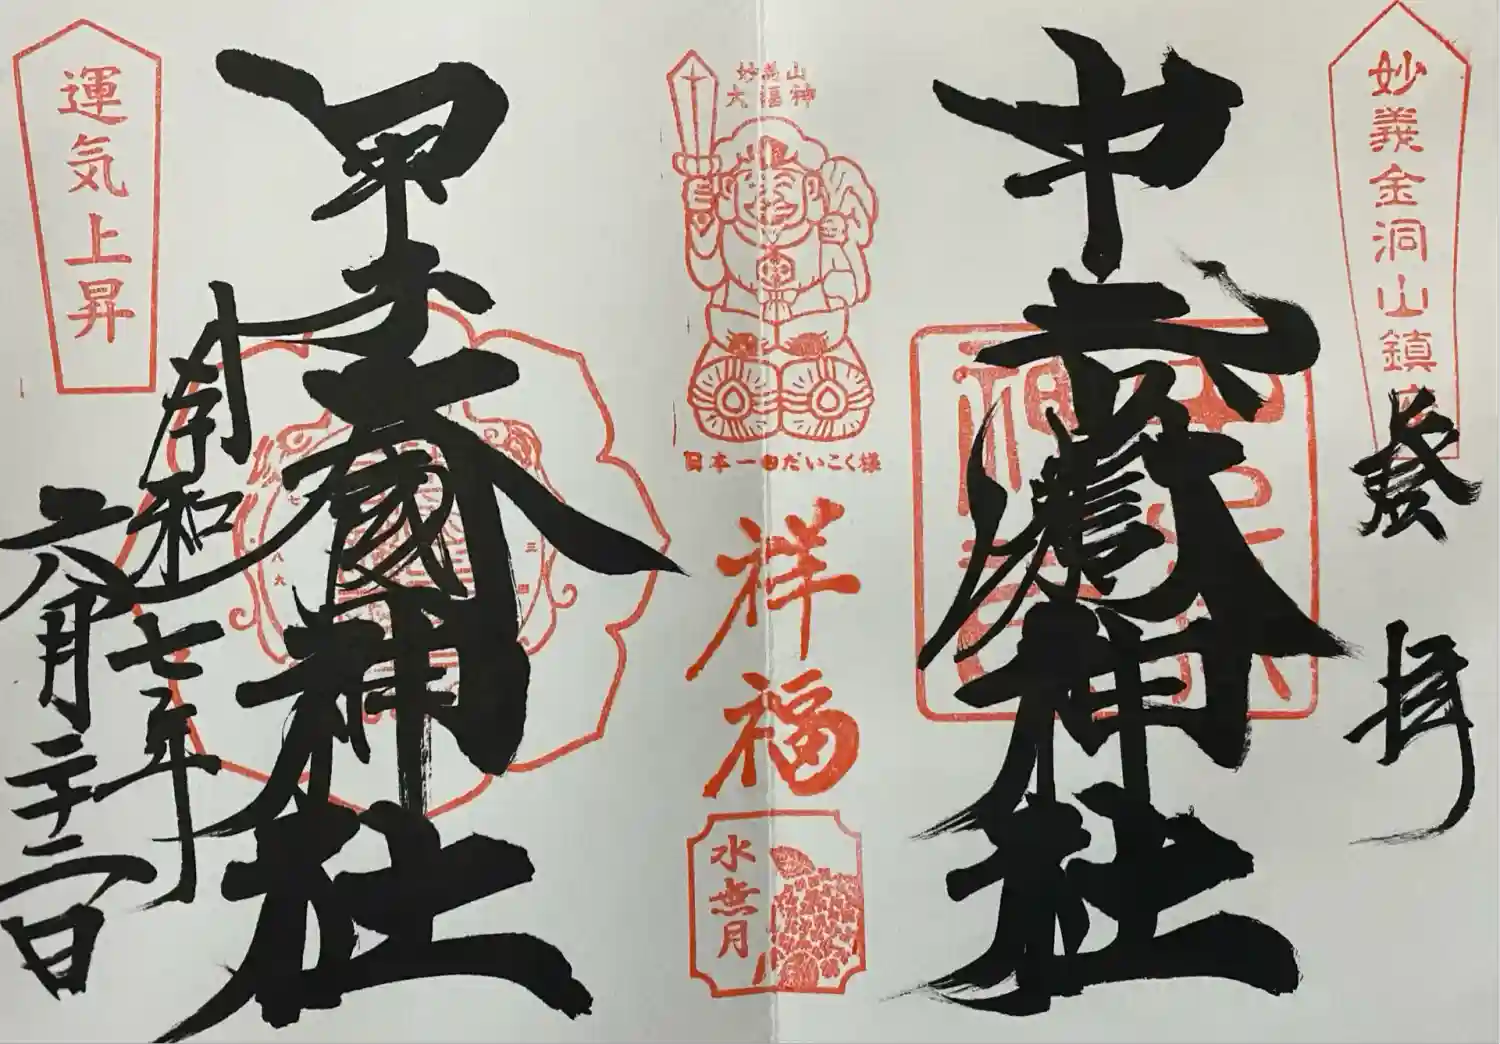 妙義金洞山鎮座
拝
中之嶽神社
妙義山
大福神
日本一のだいこく様
祥福
水無月
甲子大國神社
令和七年
六月二十二日
運気上昇